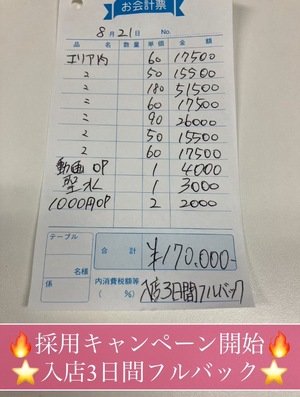 お会計票
8月21日 No.
品名 数量 単価 金額
エリア内 60 17500
〃 50 15500
〃 180 51500
〃 60 17500
〃 90 26000
〃 50 15500
〃 60 17500
動画OP 1 4000
聖水 1 3000
1000円OP 2 2000
テーブル
合計 ¥170,000-
名様
係
内消費税額等 (%)
入店3日間フルバック
🔥採用キャンペーン開始🔥
⭐入店3日間フルバック⭐